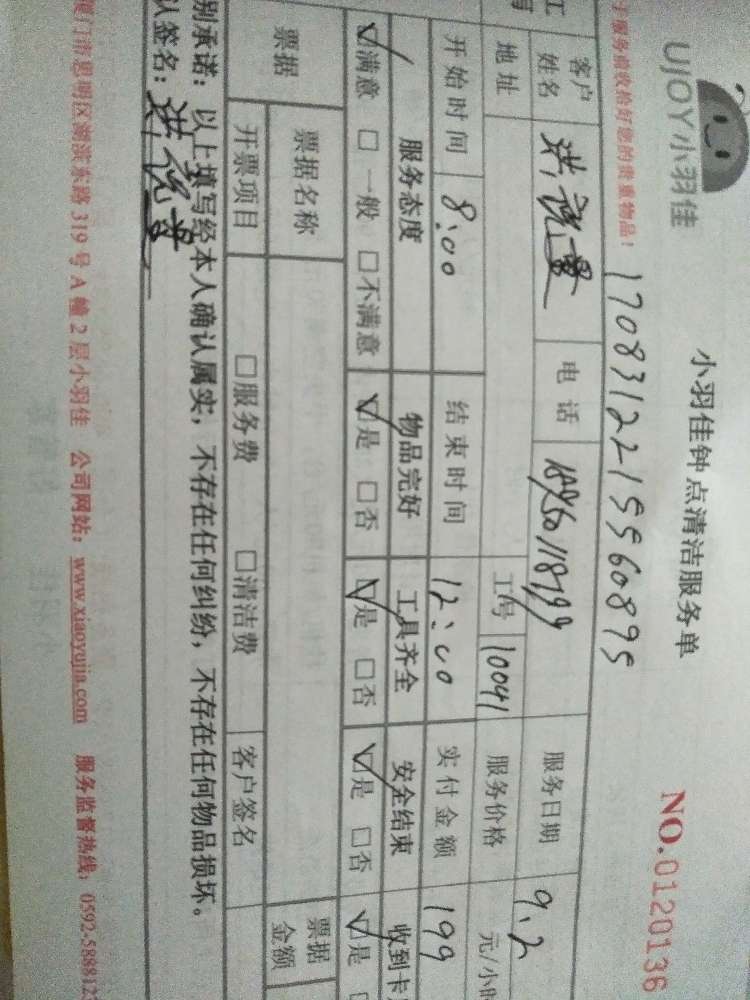 UJOY小羽佳
小羽佳钟点清洁服务单
NO.0120136
于服务前收拾好您的贵重物品！
1708312215560895
客户姓名 洪 电话 服务日期 9.2
地址 工号 10041 服务价格 元/小时
开始时间 8:00 结束时间 12:00 实付金额 199
服务态度 物品完好 工具齐全 安全结束 收到卡
☑满意 □一般 □不满意 ☑是 □否 ☑是 □否 ☑是 □否 ☑是
票据 票据名称 票据金额
开票项目 □服务费 □清洁费 客户签名
别承诺：以上填写经本人确认属实，不存在任何纠纷，不存在任何物品损坏。
认签名：洪
厦门市思明区湖滨东路319号A幢2层小羽佳 公司网站：www.xiaoyujia.com 服务监督热线：0592-588812